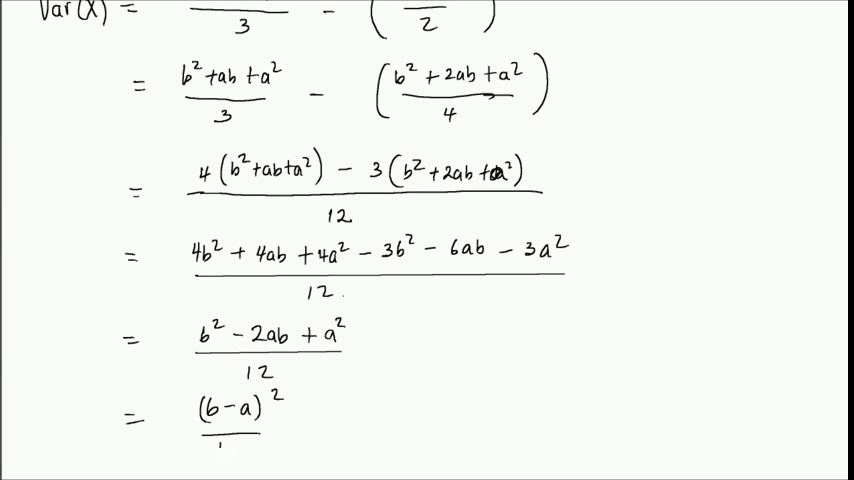 Var(X) = 3 - ( 2 )
= b²+ab+a² / 3 - ( b²+2ab+a² / 4 )
= 4(b²+ab+a²) - 3(b²+2ab+a²) / 12
= 4b² + 4ab + 4a² - 3b² - 6ab - 3a² / 12
= b² - 2ab + a² / 12
= (b-a)²